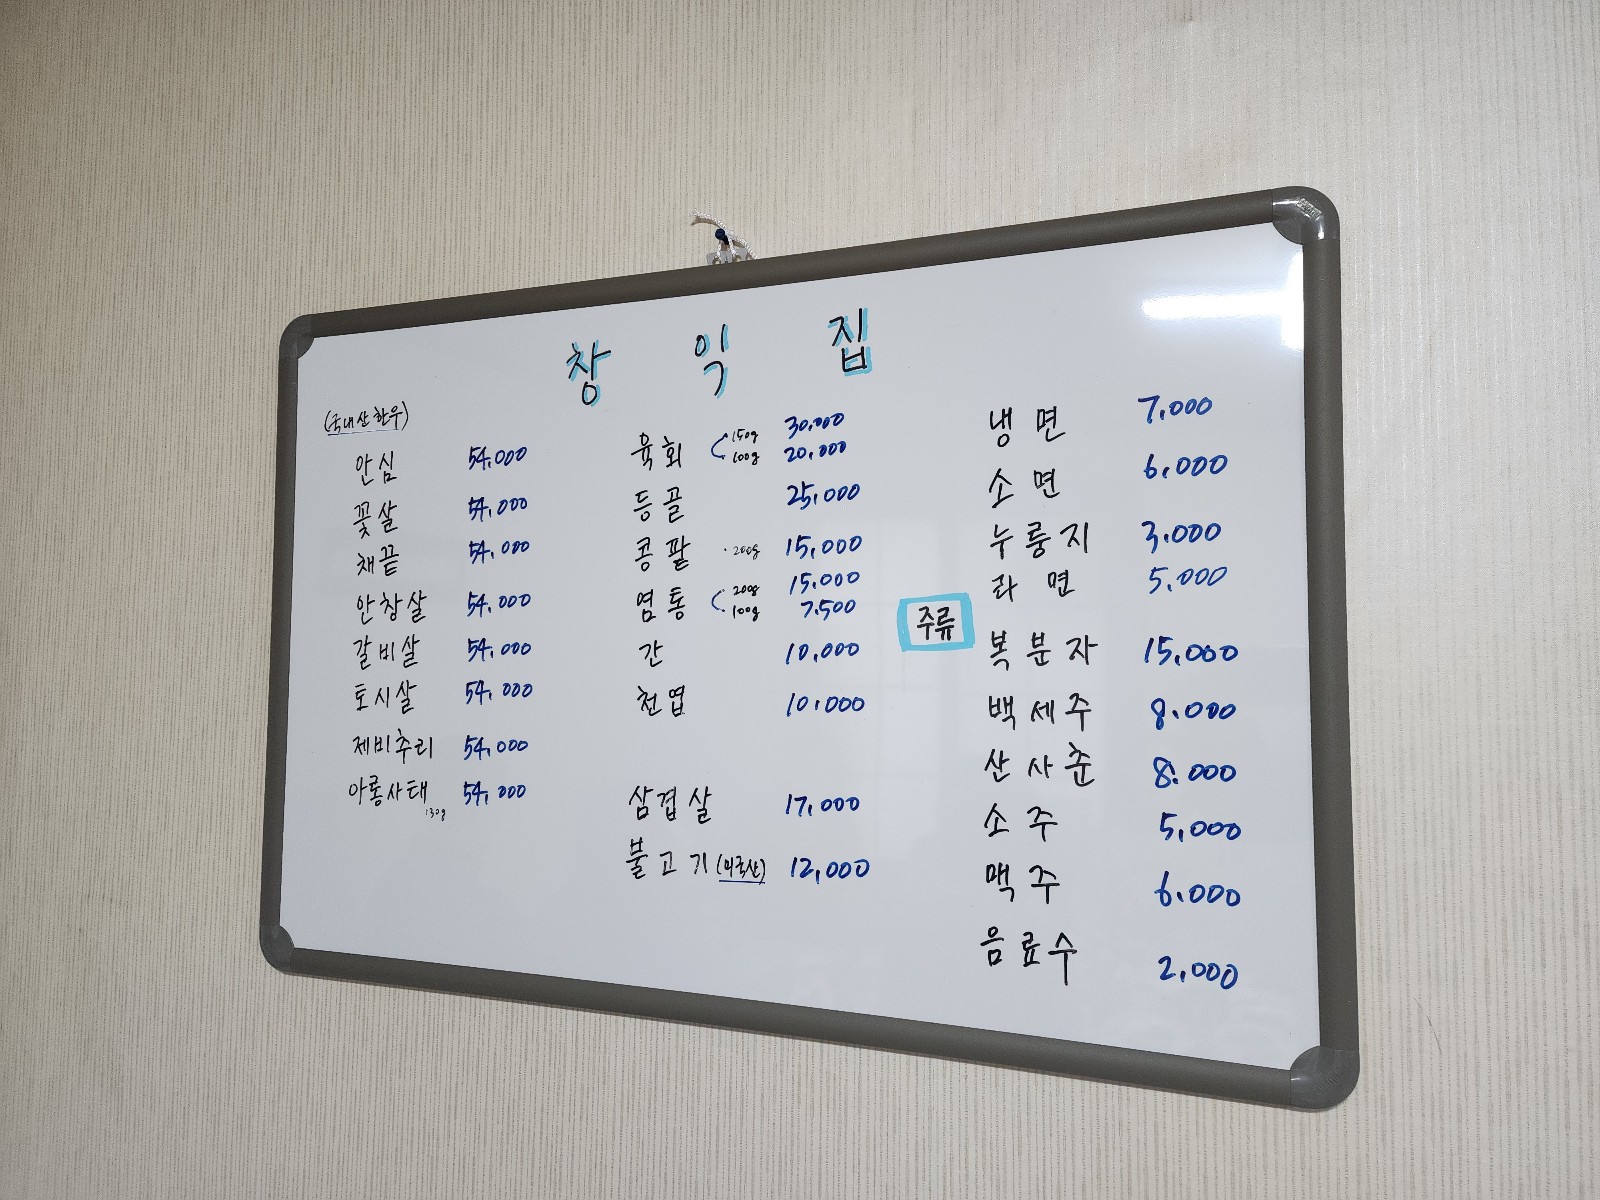 창 익 집
(국내산 한우)
안심 54,000
꽃살 54,000
채끝 54,000
안창살 54,000
갈비살 54,000
토시살 54,000
제비추리 54,000
아롱사태 54,000
130g
육회 150g 30,000
100g 20,000
등골 25,000
콩팥 200g 15,000
염통 200g 15,000
100g 7,500
간 10,000
천엽 10,000
삼겹살 17,000
불고기 (외국산) 12,000
냉면 7,000
소면 6,000
누룽지 3,000
라면 5,000
주류
복분자 15,000
백세주 8,000
산사춘 8,000
소주 5,000
맥주 6,000
음료수 2,000